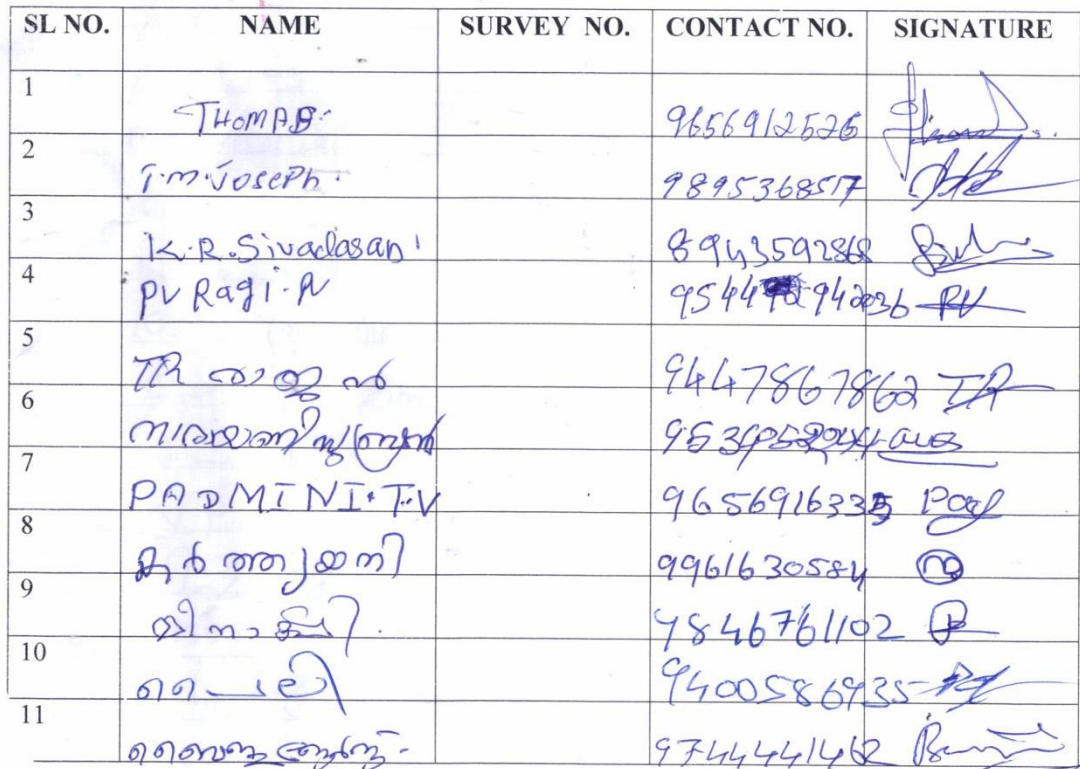 SL NO. NAME SURVEY NO. CONTACT NO. SIGNATURE
1 THOMAS 9656912526
2 T.M.JOSEPH. 9895368517
3 K.R.Sivadasan 8943592868
4 PV Ragi.PV PV
5 TR രാജൻ 9447867862 TR
6
7 PADMINI.T.V 9656916335 Pad
8 കാർത്ത്യായനി 9961630584
9 മീനാക്ഷി. 9846761102
10 പൈലി 9400586935
11 9744441462